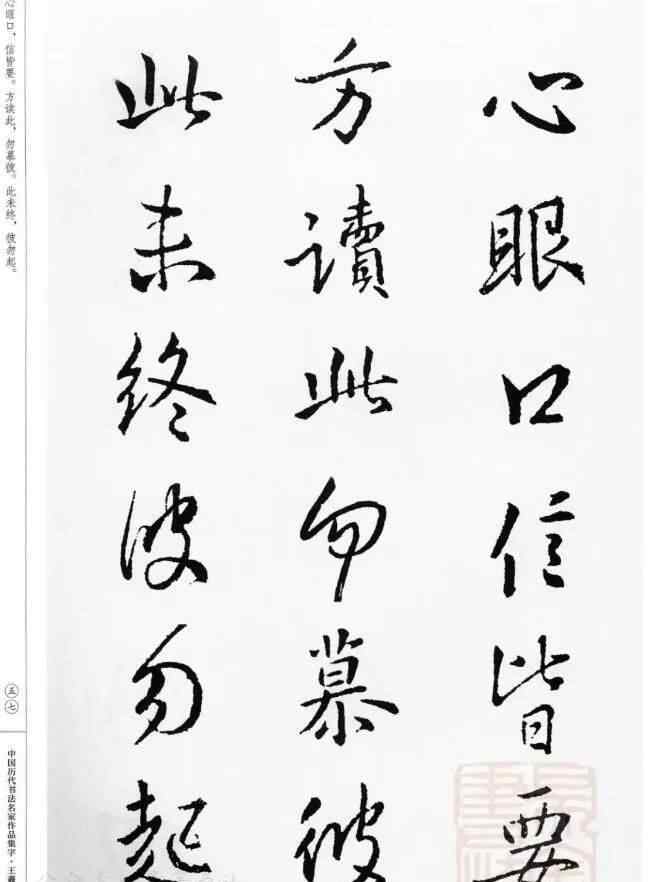 心眼口信皆要
方讀此勿慕彼
此未终彼勿起
心眼口，信皆要。方读此，勿慕彼。此未终，彼勿起。
五七
中国历代书法名家作品集字·王羲